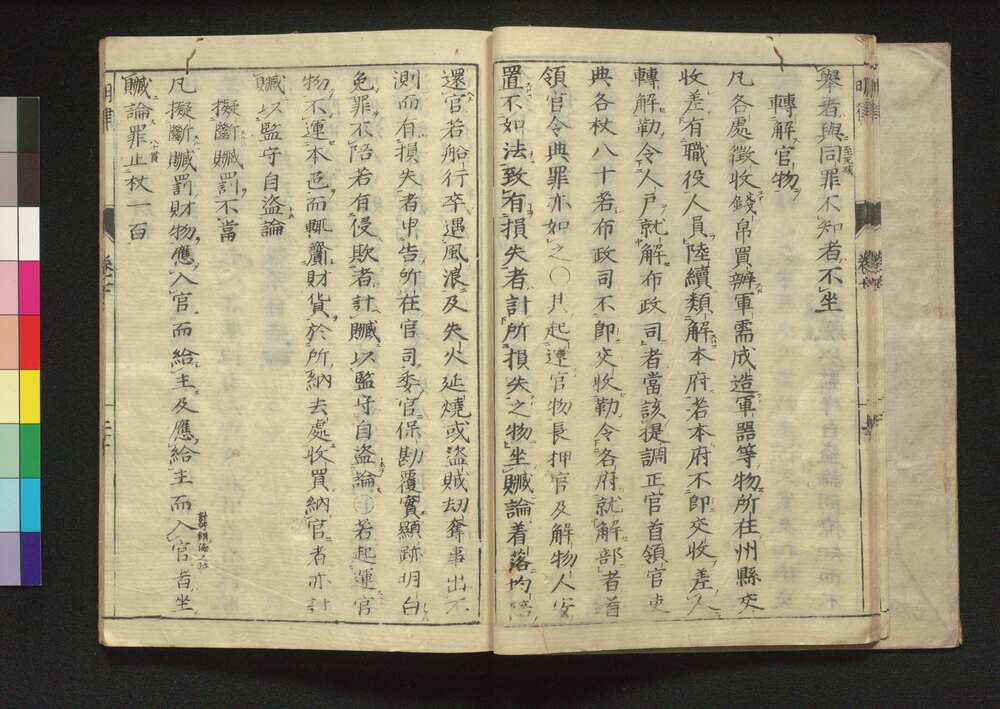 舉者與同罪不知者不坐
轉解官物
凡各處徵收錢帛買辦軍需成造軍器等物所在州縣交
收差有職役人員陸續類解本府若本府不即交收差人
轉解勒令人戶就解布政司者當該提調正官首領官吏
典各杖八十若布政司不即交收勒令各府就解部者首
領官令典罪亦如之〇其起運官物長押官及解物人安
置不如法致有損失者計所損失之物坐贓論着落均陪
還官若船行卒遇風浪及失火延燒或盜賊刼奪事出不
測而有損失者申告所在官司委官保勘覆實顯跡明白
免罪不陪若有侵欺者計贓以監守自盜論〇若起運官
物不運本色而輒齎財貨於所納去處收買納官者亦計
贓以監守自盜論
擬斷贓罰不當
凡擬斷贓罰財物應入官而給主及應給主而入官者坐
贓論罪止杖一百
明律